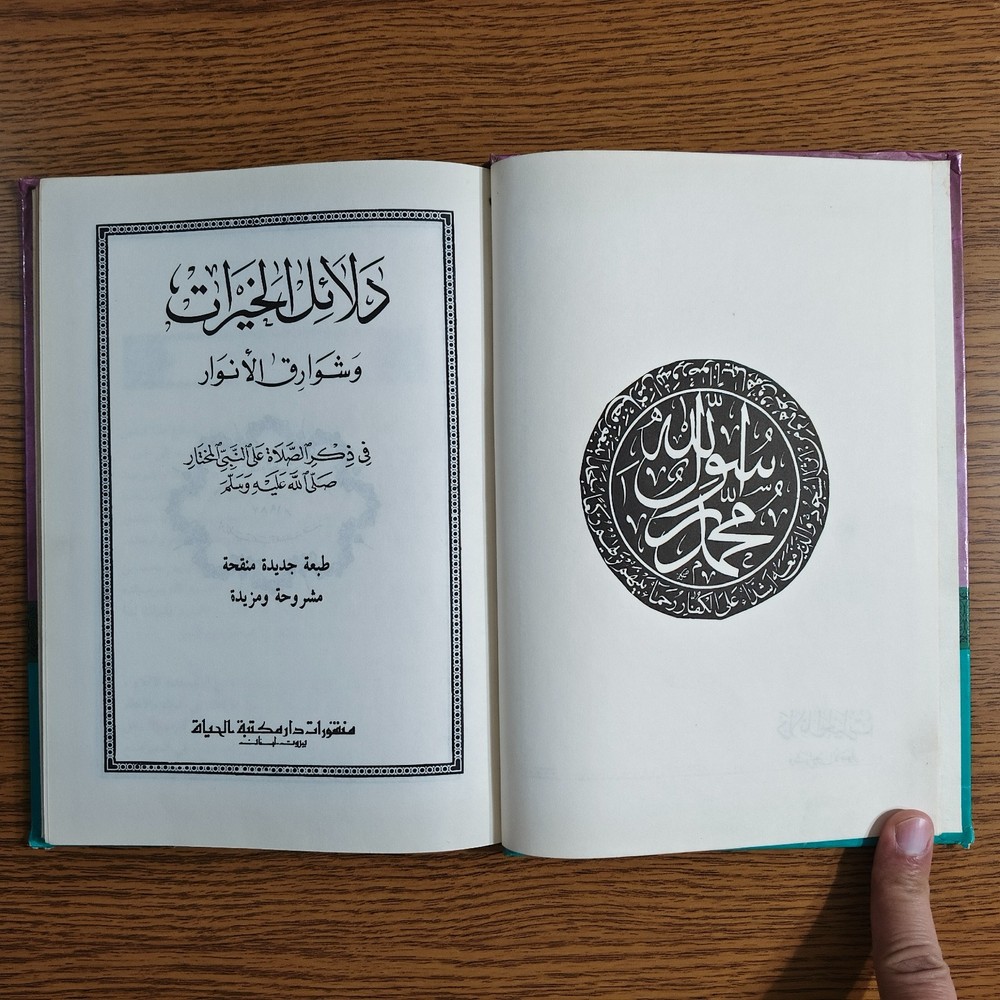 محمد رسول الله
دَلَائِلُ الْخَيْرَات
وَشَوَارِقُ الأَنْوَار
فِي ذِكْرِ الصَّلَاةِ عَلَى النَّبِيِّ الْمُخْتَارِ
صَلَّى اللهُ عَلَيْهِ وَسَلَّمَ
طبعة جديدة منقحة
مشروحة ومزيدة
منشورات دار مكتبة الحياة
بيروت - لبنان